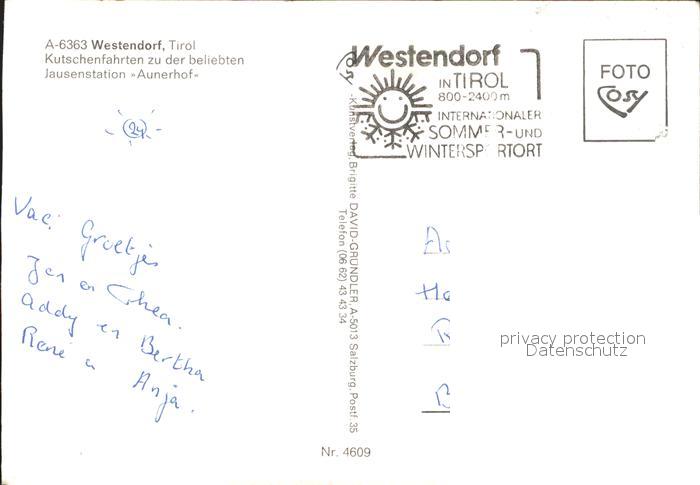 A-6363 Westendorf, Tirol
Kutschenfahrten zu der beliebten
Jausenstation »Aunerhof«
24
Vac. Groetjes
Jan en Thea.
Addy en Bertha
René en Anja.
Cosy-Kunstverlag, Brigitte DAVID-GRÜNDLER, A-5013 Salzburg, Postf. 35
Telefon (06 62) 43 43 34
Westendorf
IN TIROL
800-2400m
INTERNATIONALER
SOMMER- UND
WINTERSPORTORT
FOTO
Cosy
privacy protection
Datenschutz
Nr. 4609